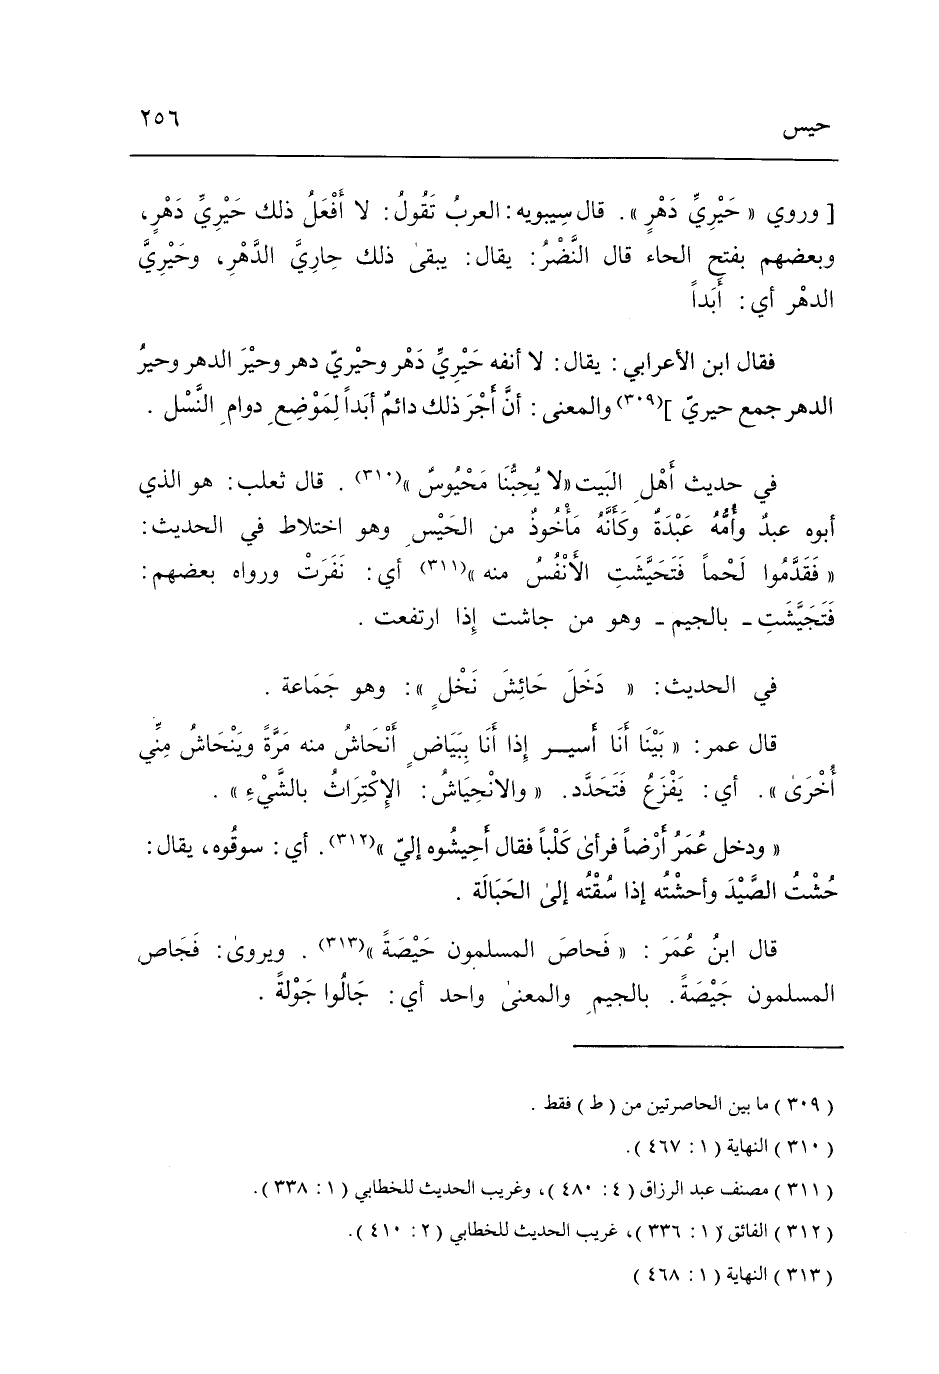 حيس ٢٥٦
[ وروي « حَيْرِيِّ دَهْرٍ ». قال سِيبويه: العربُ تَقُولُ: لا أَفْعَلُ ذلك حَيْرِيِّ دَهْرٍ،
وبعضهم بفتح الحاء قال النَّضْرُ: يقال: يبقىٰ ذلك حاِرِيَّ الدَّهْرِ، وحَيْرِيَّ
الدهْر أي: أَبَداً
فقال ابن الأعرابي: يقال: لا أنفه حَيْرِيِّ دَهْر وحيْريّ دهر وحيْرَ الدهر وحيرُ
الدهر جمع حيريّ ](٣٠٩) والمعنى: أنَّ أَجْرَ ذلك دائمٌ أبَداً لِمَوْضِعِ دوام النَّسْل .
في حديث أَهْلِ البَيت «لا يُحِبُّنَا مَحْيُوسٌ »(٣١٠) . قال ثعلب: هو الذي
أبوه عبدٌ وأُمُّهُ عَبْدَةٌ وكَأَنَّهُ مَأْخُوذٌ من الحَيْسِ وهو اختلاط في الحديث:
« فَقَدَّمُوا لَحْماً فَتَحَيَّشَتِ الأَنْفُسُ منه »(٣١١) أي: نَفَرَتْ ورواه بعضهم:
فَتَجَيَّشَتِ ـ بالجيم ـ وهو من جاشت إِذا ارتفعت .
في الحديث: « دَخَلَ حَائِشَ نَخْلٍ »: وهو جَمَاعة .
قال عمر: « بَيْنَا أَنَا أَسيـر إِذا أَنَا بِبَيَاضٍ أَنْحَاشُ منه مَرَّةً ويَنْحَاشُ مِنِّي
أُخْرَىٰ ». أي: يَفْزَعُ فَتَحَدَّد. « والانْحِيَاشُ: الإِكْتِرَاثُ بالشَّيْءِ » .
« ودخل عُمَرُ أَرْضاً فرأىٰ كَلْباً فقال أَحِيشُوه إليّ »(٣١٢). أي: سوقُوه، يقال:
حُشْتُ الصَّيْدَ وأحشْتُه إذا سُقْتُه إلىٰ الحَبَالَة .
قال ابنُ عُمَرَ : « فَحاصَ المسلمون حَيْصَةً »(٣١٣) . ويروىٰ: فَجَاص
المسلمون جَيْصَةً. بالجيمِ والمعنىٰ واحد أي: جَالُوا جَوْلةً .
( ٣٠٩ ) ما بين الحاصرتين من ( ط ) فقط .
( ٣١٠ ) النهاية ( ١ : ٤٦٧ ).
( ٣١١ ) مصنف عبد الرزاق ( ٤ : ٤٨٠ )، وغريب الحديث للخطابي ( ١ : ٣٣٨ ).
( ٣١٢ ) الفائق ( ١ : ٣٣٦ )، غريب الحديث للخطابي ( ٢ : ٤١٠ ).
( ٣١٣ ) النهاية ( ١ : ٤٦٨ )